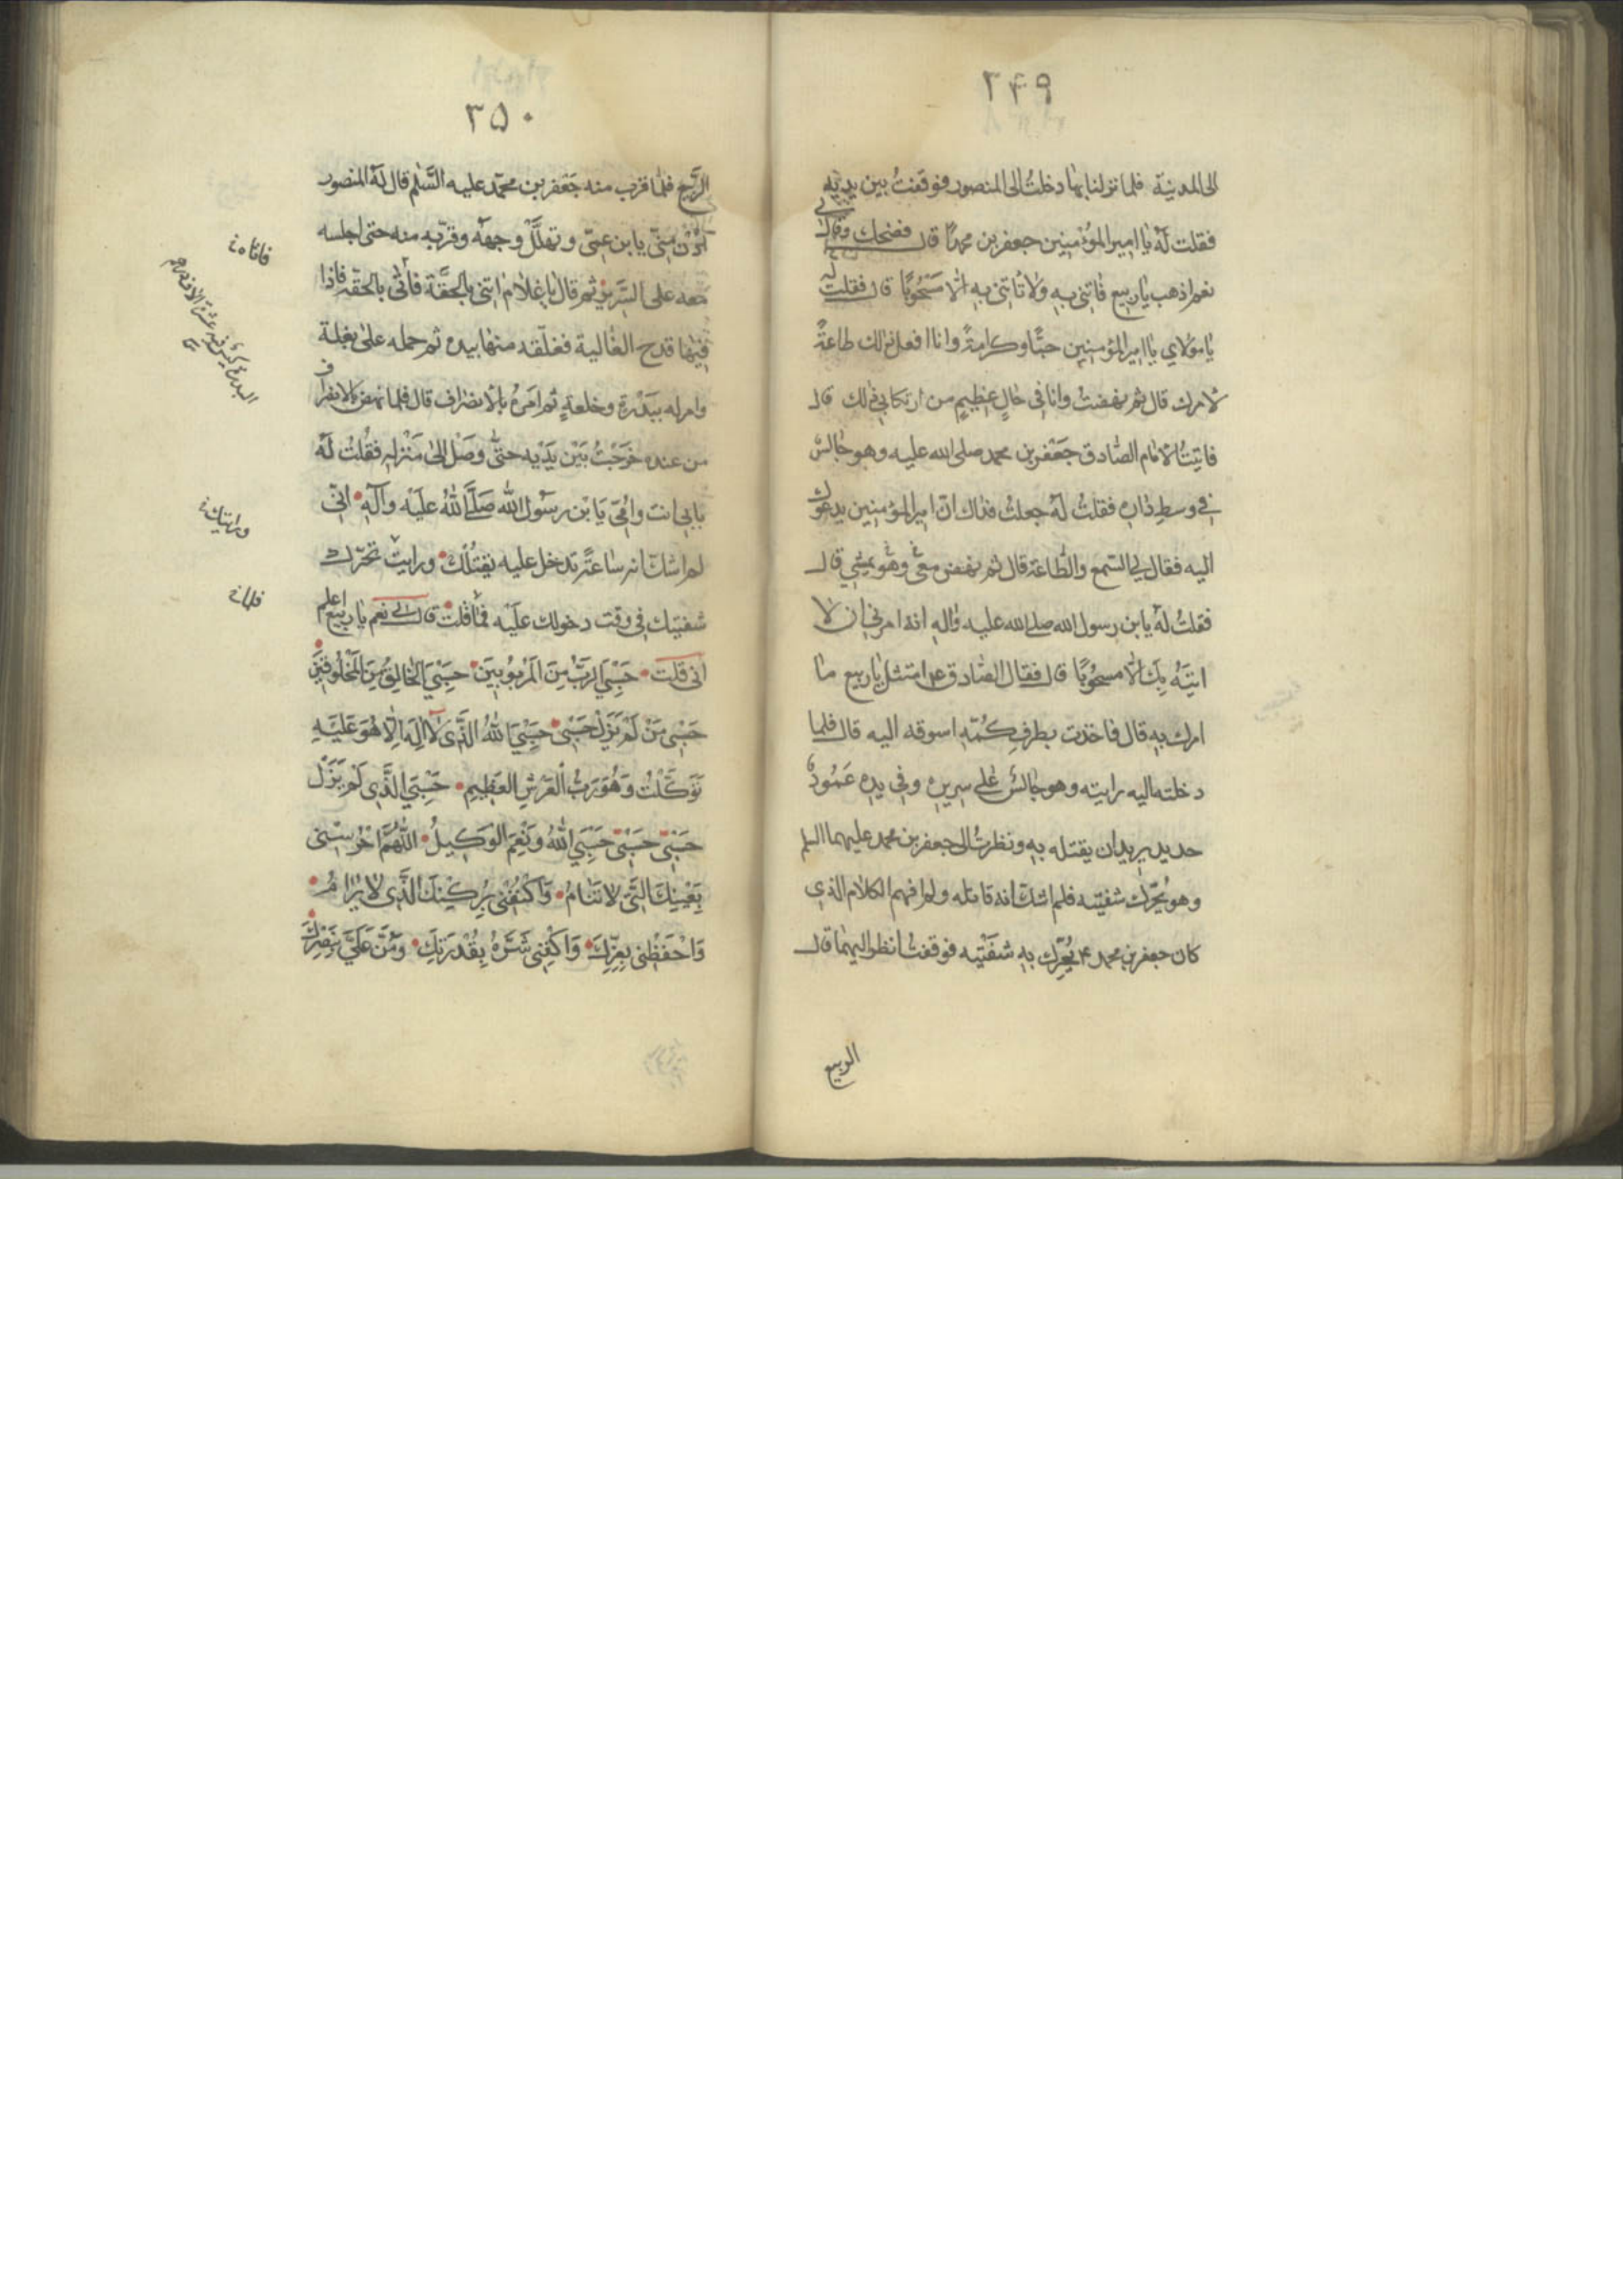 ٣۴٩
الى المدينة فلما نزلنا بها دخلتُ الى المنصور فوقفتُ بين يديه
فقلت لهُ يا امير المؤمنين جعفر بن محمدٌ قال فضحك وقال لى
نعم اذهب يا ربيع فأتنى بهِ ولا تأتنى بهِ الّا مسحُوبًا قال فقلت له
يا مولاي يا امير المؤمنين حبًّا وكرامةً وانا افعل ذلك طاعةً
لامرك قال ثم نهضتُ وانا فى حالٍ عظيمٍ من ارتكابى ذلك قال
فاتيتُ الامام الصّادق جعفر بن محمد صلى الله عليه وهو جالسٌ
فى وسطِ داره فقلتُ لهُ جعلتُ فداك انّ امير المؤمنين يدعوك
اليه فقال لى السّمع والطّاعة قال ثم نهض معى وهو يمشي قال
فقلتُ لهُ يابن رسول الله صلى الله عليه واله انهُ امرنى ان لا
اتيَهُ بِكَ الّا مسحُوبًا قال فقال الصّادق ع امتثل يا ربيع ما
امرك بهِ قال فاخذت بطرفِ كُمّهِ اسوقه اليه قال فلما
دخلته اليه رايته وهو جالسٌ على سريرهِ وفى يده عَمُودُ
حديد يريد ان يقتله بهِ ونظرتُ الى جعفر بن محمد عليهما السلم
وهو يُحرّك شفتيه فلم اشكّ انه قاتله ولم افهم الكلام الذى
كان جعفر بن محمد ع يُحرِّك بهِ شفَتَيه فوقفتُ انظر اليهما قال
الربيع
٣۵٠
الرّبيع فلمّا قرب منه جَعفر بن محمّد عليه السّلم قال لهُ المنصور
اُدْنُ مِنّى يا بن عمّى وتهلَّلَ وجههُ وقرّبه منه حتى اجلسه
معه على السّرير ثم قال يا غلام ائتنى بالحقّة فأتى بالحقّه فاذا
فيها قدح الغالية فغلّقه منها بيده ثم حمله على بغلة
وامر له ببَدْرة وخلعةٍ ثم امَرهُ بالانصراف قال فلما نهض بالانصراف
من عنده خرَجْتُ بَيْنَ يَدَيه حتّى وصَل الى مَنْزله فقُلتُ لَهُ
بابى انت واُمّى يَا بْن رسُول الله صَلَّى اللهُ عَلَيْه وآلهِ انّى
لم اشكّ انه ساعةً تدخل عليه يقتُلُك ورايت تحرّك
شفتيك فى وقت دخولك عليه فما قلت قال لى نعم يا ربيع اعلم
انى قلت حَسْبِيَ الرَّبُّ مِنَ المَربُوبِينَ حَسْبِيَ الخَالِقُ مِنَ المَخلُوقِينَ
حَسْبِى مَنْ لَمْ يَزَلْ حَسْبِى حَسْبِيَ اللهُ الَّذِى لَا اِلَهَ اِلَّا هُوَ عَلَيْهِ
تَوَكَّلْتُ وَهُوَ رَبُّ الْعَرْشِ العَظِيمِ حَسْبِيَ الَّذِى لَمْ يَزَلْ
حَسْبِى حَسْبِى حَسْبِيَ اللهُ وَنِعْمَ الوَكِيلُ اَللّٰهُمَّ احْرُسْنِى
بِعَيْنِكَ الَّتِى لَا تَنَامُ وَاكْنُفْنِى بِرُكْنِكَ الَّذِى لَا يُرَامُ
وَاحْفَظْنِى بِعِزِّكَ وَاكْفِنِى شَرَّهُ بِقُدْرَتِكَ وَمُنَّ عَلَيَّ بِنَصْرِكَ
فاتاه
البدرة كيس فيه عشرة الاف درهم
ورايتك
فلما